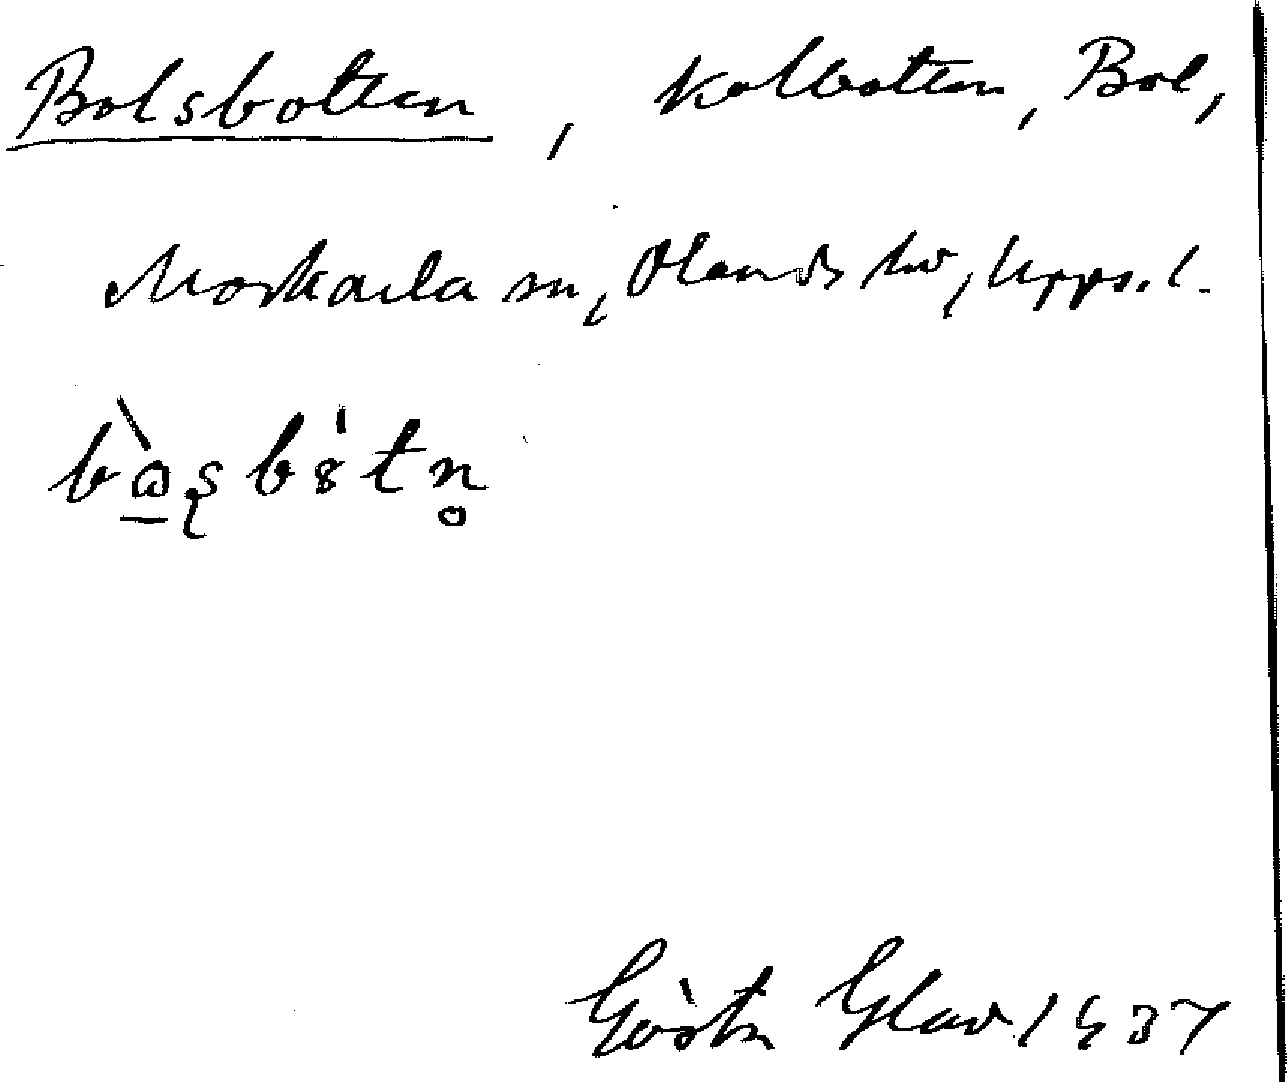 Bolsbotten, kolbotten, Bol,
Morkarla sn, Olands hd, Upps. l.
Gösta Glad. 1937